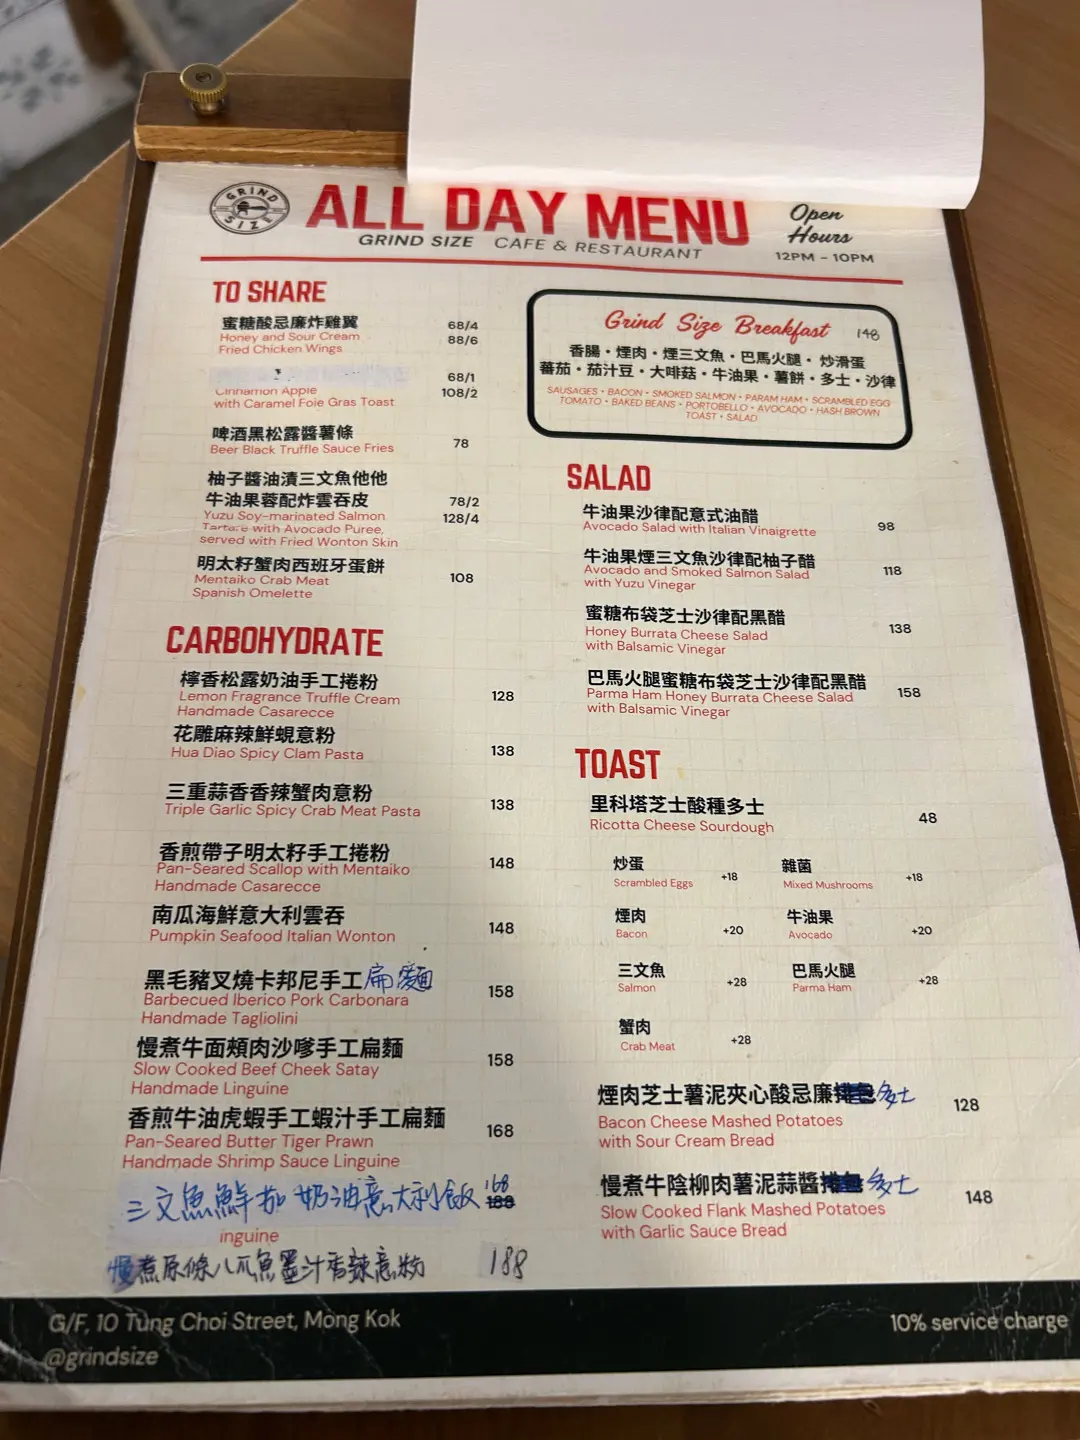 GRIND SIZE
ALL DAY MENU
GRIND SIZE CAFE & RESTAURANT
Open
Hours
12PM - 10PM
TO SHARE
蜜糖酸忌廉炸雞翼
Honey and Sour Cream 68/4
Fried Chicken Wings 88/6
68/1
Cinnamon Apple 108/2
with Caramel Foie Gras Toast
啤酒黑松露醬薯條
Beer Black Truffle Sauce Fries 78
柚子醬油漬三文魚他他
牛油果蓉配炸雲吞皮 78/2
Yuzu Soy-marinated Salmon 128/4
Tartare with Avocado Puree,
served with Fried Wonton Skin
明太籽蟹肉西班牙蛋餅
Mentaiko Crab Meat 108
Spanish Omelette
CARBOHYDRATE
檸香松露奶油手工捲粉
Lemon Fragrance Truffle Cream 128
Handmade Casarecce
花雕麻辣鮮蜆意粉
Hua Diao Spicy Clam Pasta 138
三重蒜香香辣蟹肉意粉
Triple Garlic Spicy Crab Meat Pasta 138
香煎帶子明太籽手工捲粉
Pan-Seared Scallop with Mentaiko 148
Handmade Casarecce
南瓜海鮮意大利雲吞
Pumpkin Seafood Italian Wonton 148
黑毛豬叉燒卡邦尼手工扁麵
Barbecued Iberico Pork Carbonara 158
Handmade Tagliolini
慢煮牛面頰肉沙嗲手工扁麵
Slow Cooked Beef Cheek Satay 158
Handmade Linguine
香煎牛油虎蝦手工蝦汁手工扁麵
Pan-Seared Butter Tiger Prawn 168
Handmade Shrimp Sauce Linguine
三文魚鮮茄奶油意大利飯 168
188
inguine
慢煮原條八爪魚墨汁香辣意粉 188
Grind Size Breakfast 148
香腸・煙肉・煙三文魚・巴馬火腿・炒滑蛋
蕃茄・茄汁豆・大啡菇・牛油果・薯餅・多士・沙律
SAUSAGES • BACON • SMOKED SALMON • PARAM HAM • SCRAMBLED EGG
TOMATO • BAKED BEANS • PORTOBELLO • AVOCADO • HASH BROWN
TOAST • SALAD
SALAD
牛油果沙律配意式油醋
Avocado Salad with Italian Vinaigrette 98
牛油果煙三文魚沙律配柚子醋
Avocado and Smoked Salmon Salad 118
with Yuzu Vinegar
蜜糖布袋芝士沙律配黑醋
Honey Burrata Cheese Salad 138
with Balsamic Vinegar
巴馬火腿蜜糖布袋芝士沙律配黑醋
Parma Ham Honey Burrata Cheese Salad 158
with Balsamic Vinegar
TOAST
里科塔芝士酸種多士
Ricotta Cheese Sourdough 48
炒蛋 雜菌
Scrambled Eggs +18 Mixed Mushrooms +18
煙肉 牛油果
Bacon +20 Avocado +20
三文魚 巴馬火腿
Salmon +28 Parma Ham +28
蟹肉
Crab Meat +28
煙肉芝士薯泥夾心酸忌廉多士 128
Bacon Cheese Mashed Potatoes
with Sour Cream Bread
慢煮牛陰柳肉薯泥蒜醬多士 148
Slow Cooked Flank Mashed Potatoes
with Garlic Sauce Bread
G/F, 10 Tung Choi Street, Mong Kok
@grindsize
10% service charge